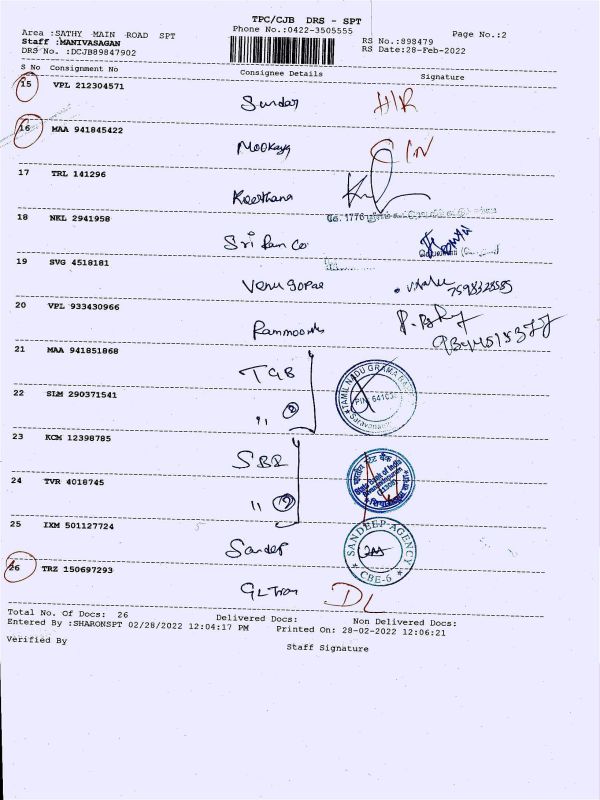 TPC/CJB DRS - SPT
Phone No.:0422-3505555
Page No.:2
Area :SATHY MAIN ROAD SPT
Staff :MANIVASAGAN
DRS No. :DCJB89847902
RS No.:898479
RS Date:28-Feb-2022
S No Consignment No Consignee Details Signature
15 VPL 212304571
Sundar HIR
16 MAA 941845422
Mookaya IN
17 TRL 141296
Keerthana
18 NKL 2941958
1776
Sri Ram Co
19 SVG 4518181
Venugopal
20 VPL 933430966
21 MAA 941851868
TGB TAMIL NADU GRAMA
22 SLM 290371541
" 2
23 KCM 12398785
SBI State Bank of India
24 TVR 4018745
"
25 IXM 501127724
Sandep SANDEEP AGENCY CBE-6
26 TRZ 150697293
GL Tran DL
Total No. Of Docs: 26 Delivered Docs: Non Delivered Docs:
Entered By :SHARONSPT 02/28/2022 12:04:17 PM Printed On: 28-02-2022 12:06:21
Verified By Staff Signature